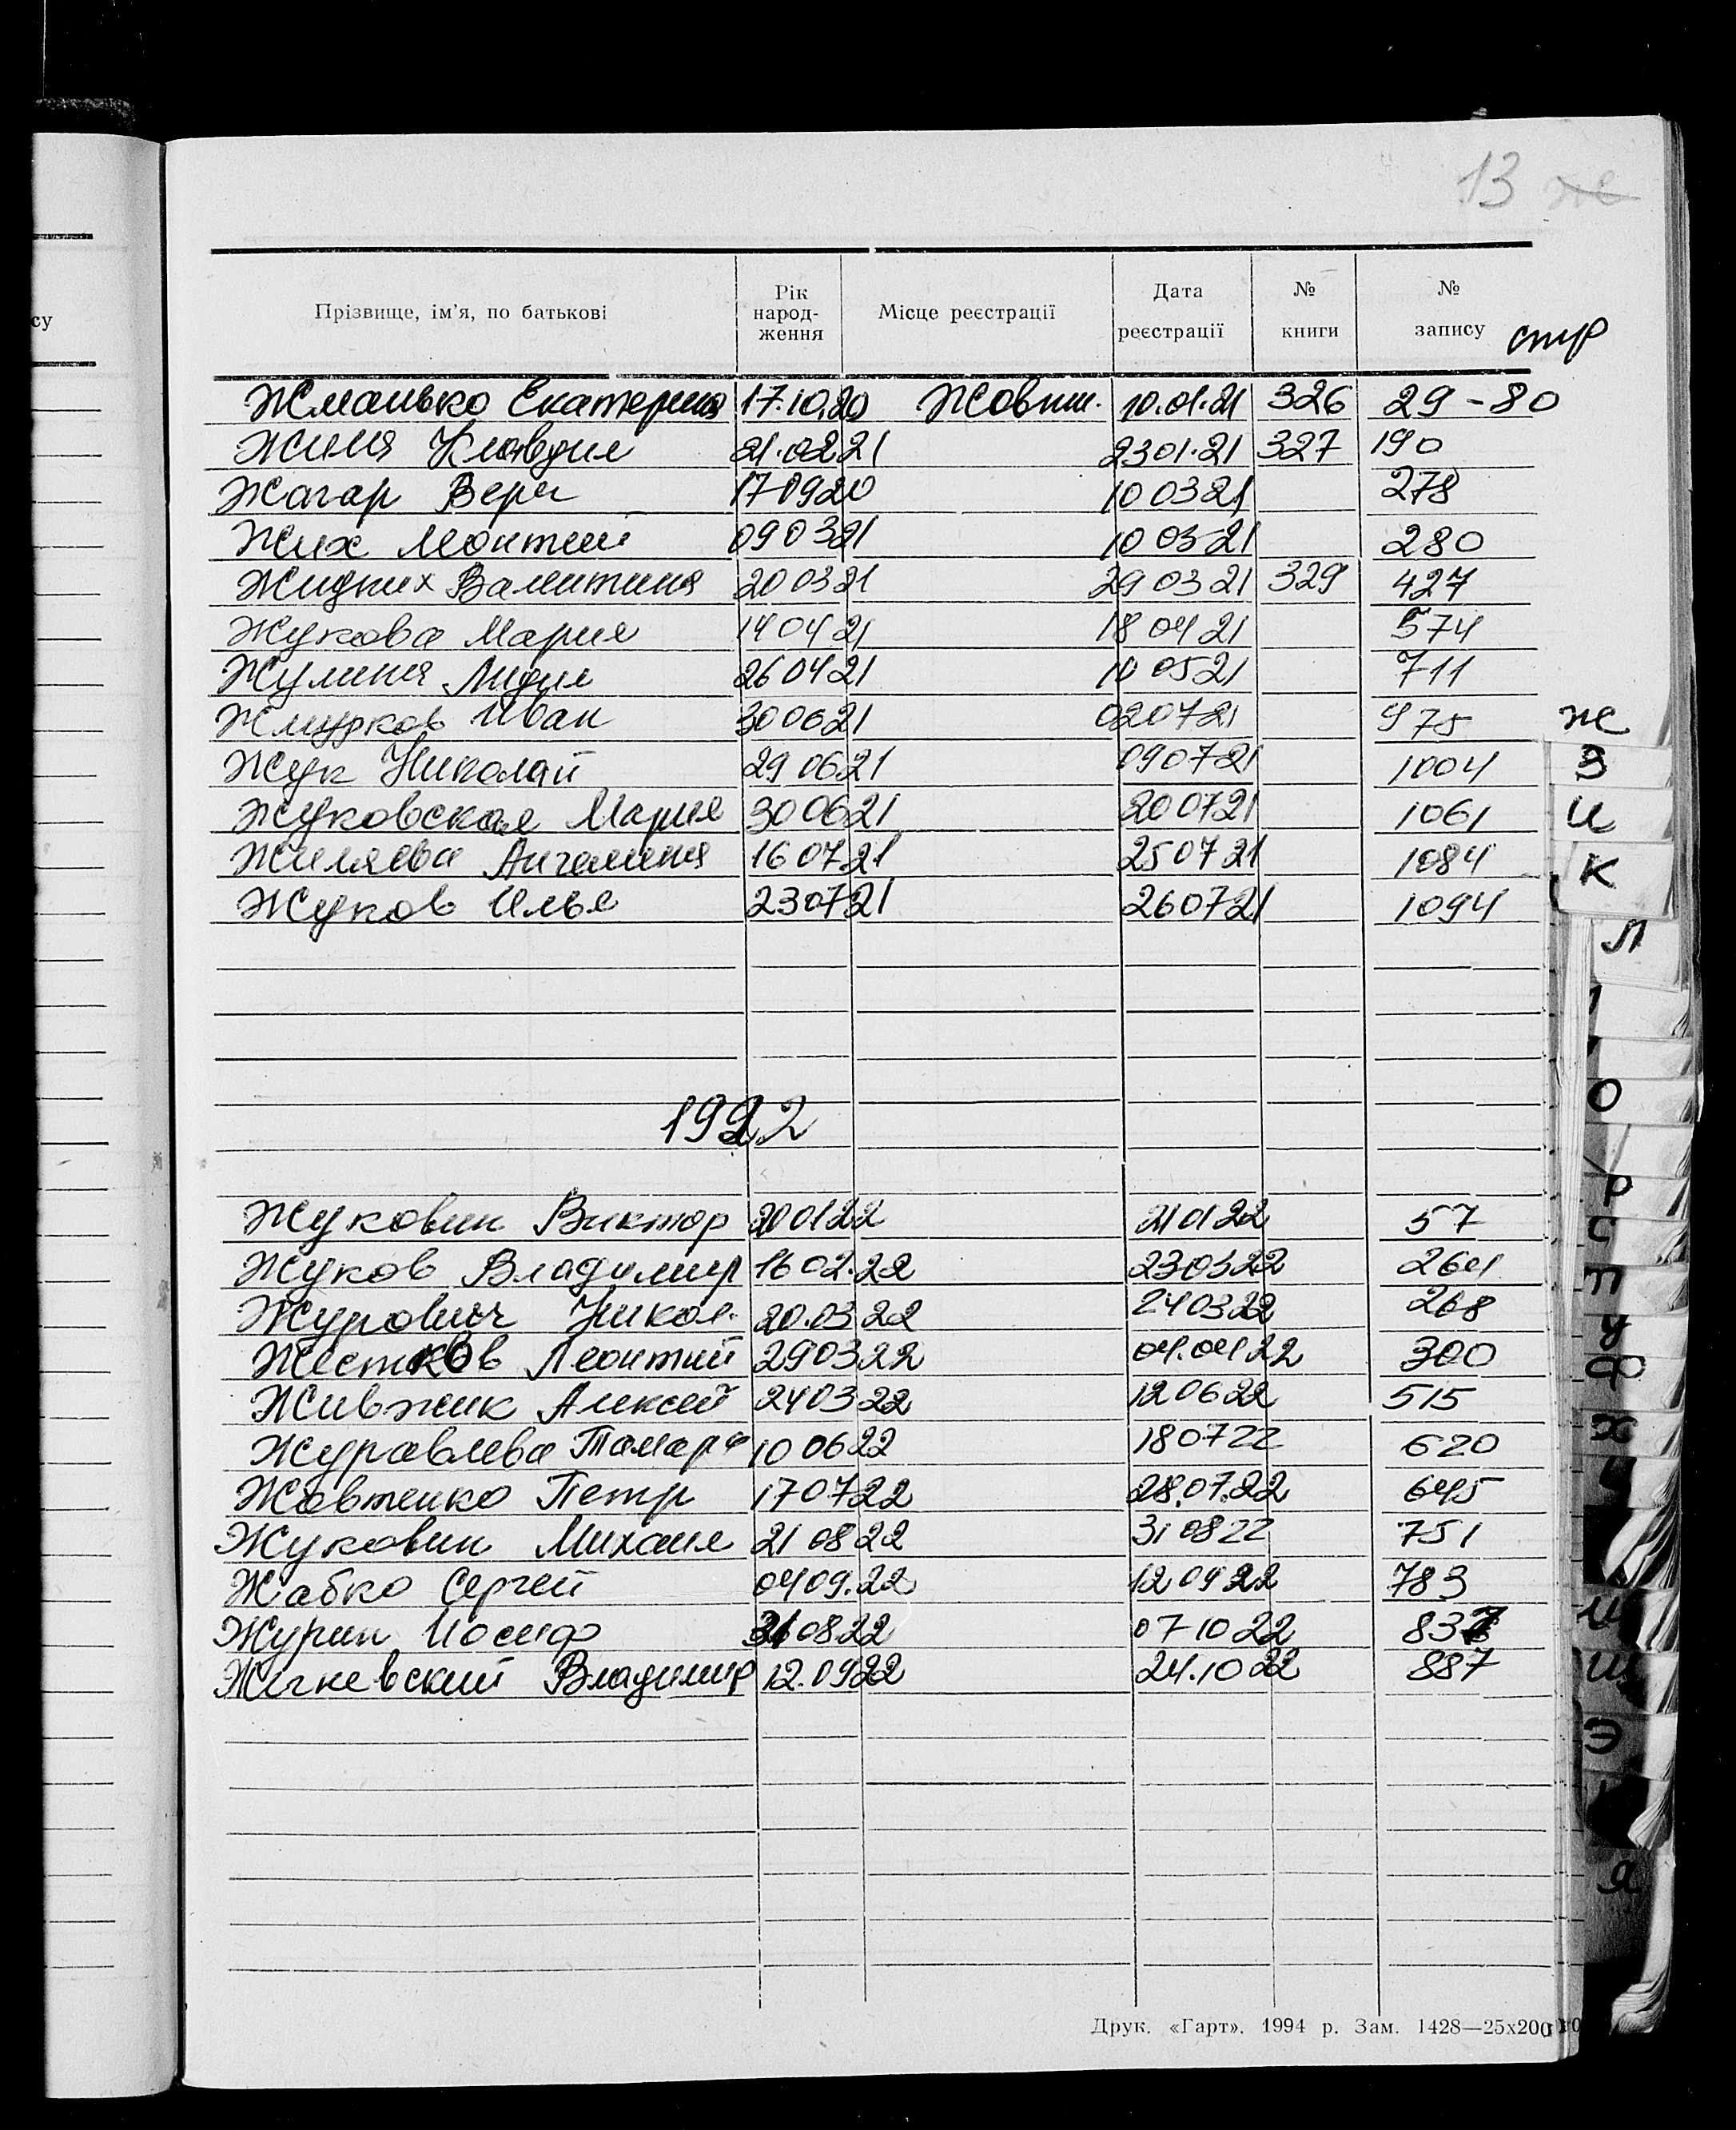 13 ж
су
Прізвище, ім'я, по батькові | Рік народження | Місце реєстрації | Дата реєстрації | № книги | № запису стр
Жманько Екатерина 17.10.20 Жовтн. 10.01.21 326 29-80
Жиля Клавдия 21.02.21 23 01.21 327 190
Жагар Вера 17 09 20 10 03 21 278
Жих Леонтий 09 03 21 10 03 21 280
Жидких Валентина 20 03 21 29 03 21 329 427
Жукова Мария 14 04 21 18 04 21 574
Жулина Лидия 26 04 21 10 05 21 711
Жмурков Иван 30 06 21 02 07 21 975
Жук Николай 29 06 21 09 07 21 1004
Жуковская Мария 30 06 21 20 07 21 1061
Жиляева Ангелина 16 07 21 25 07 21 1084
Жуков Илья 23 07 21 26 07 21 1094
1922
Жуковин Виктор 20 01 22 21 01 22 57
Жуков Владимир 16 02.22 23 03 22 264
Журович Никол. 20.03 22 24 03 22 268
Жестков Леонтий 29 03 22 04.04 22 300
Живжик Алексей 24 03 22 12 06 22 515
Журавлева Тамара 10 06 22 18 07 22 620
Жовтенко Петр 17 07 22 28.07.22 645
Жуковин Михаил 21 08 22 31 08 22 751
Жабко Сергей 04 09.22 12 09 22 783
Журин Иосиф 31 08 22 07 10 22 837
Жигневский Владимир 12.09 22 24.10 22 887
Ж
З
И
К
Л
О
Р
С
Т
У
Ф
Х
Ч
Ш
Э
Я
Друк. «Гарт». 1994 р. Зам. 1428—25х200